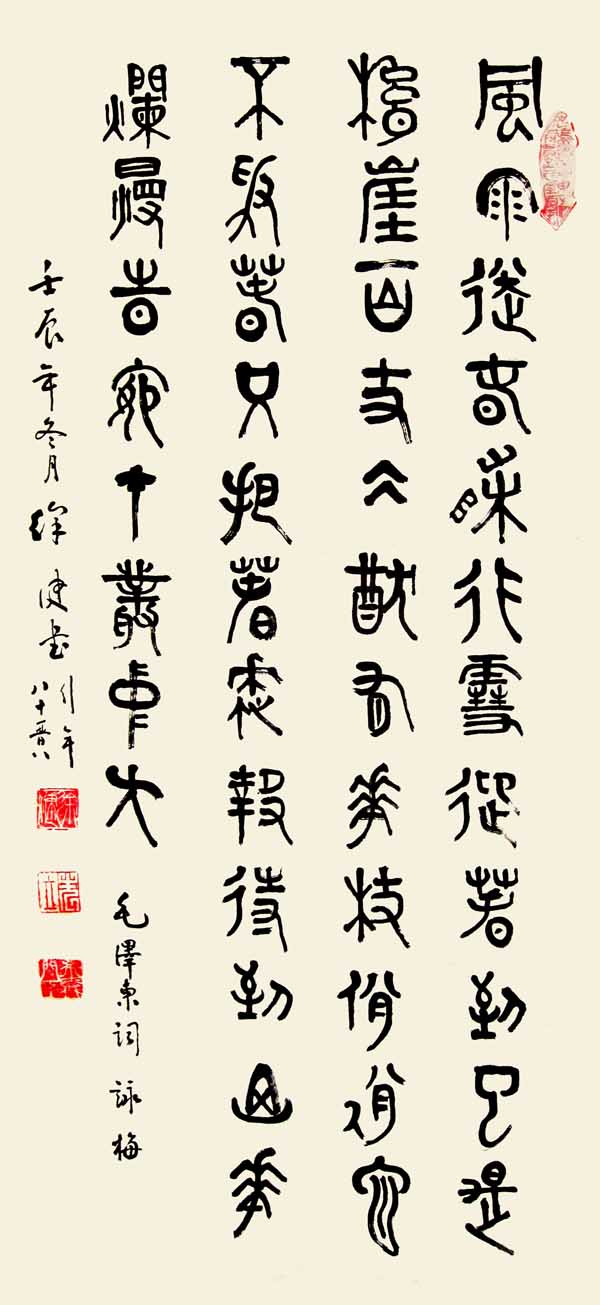 風雨送春歸飛雪迎春到已是
懸崖百丈冰猶有花枝俏俏也
不爭春只把春來報待到山花
爛漫時她在叢中笑
毛澤東詞 詠梅
壬辰年冬月 徐健書
行年八十晋八